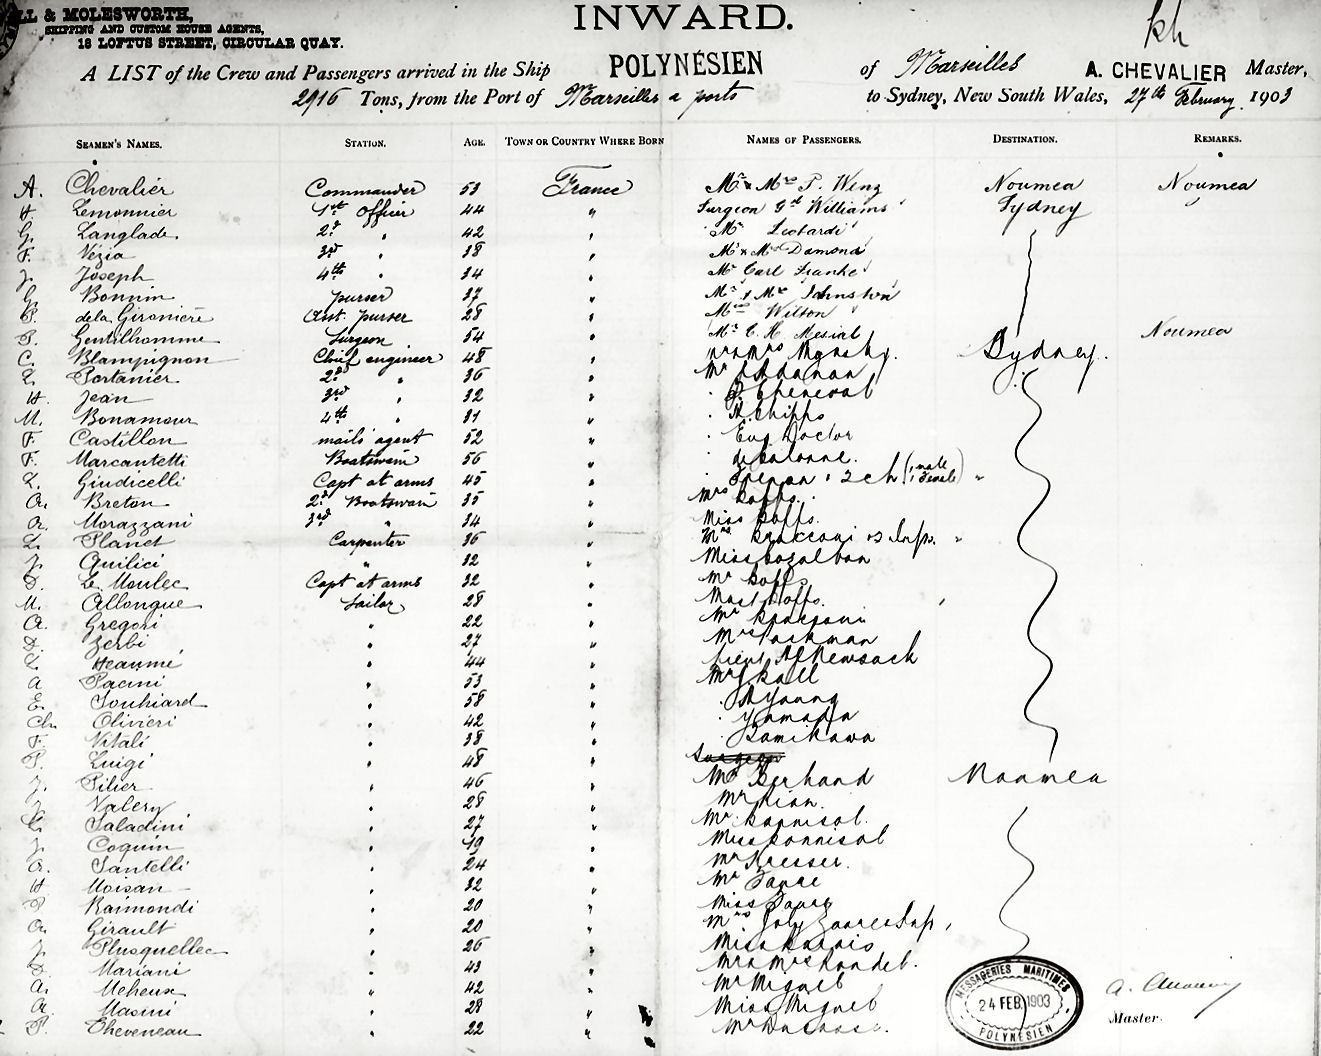 LL & MOLESWORTH,
SHIPPING AND CUSTOM HOUSE AGENTS,
18 LOFTUS STREET, CIRCULAR QUAY.
INWARD.
A LIST of the Crew and Passengers arrived in the Ship POLYNÉSIEN of Marseilles A. CHEVALIER Master,
2916 Tons, from the Port of Marseilles a ports to Sydney, New South Wales, 27th February 1903
SEAMEN'S NAMES. STATION. AGE. TOWN OR COUNTRY WHERE BORN NAMES OF PASSENGERS. DESTINATION. REMARKS.
A. Chevalier Commander 53 France Mr & Mrs T. Weng Noumea Noumea
H. Lemonnier 1st Officer 44 " Surgeon Gl Williams Sydney
G. Langlade 2d " 42 " Mr Leotardi
F. Vézia 3rd " 38 " Mr & Mrs Damond
J. Joseph 4th " 34 " Mr Carl Franke
G. Bonnin purser 37 " Mr & Mrs Johnston
P. de la Gironière Ast. purser 28 " Mrs Wilson
P. Gentilhomme Surgeon 54 " Mr C. H. Mesial Noumea
C. Blampignon Chief engineer 48 " Mr & Mrs Sydney.
E. Portanier 2d " 36 " Mr
H. Jean 3rd " 32 "
M. Bonamour 4th " 31 " Chipps
F. Castillon mails agent 52 " Eug Doctor
F. Marcantetti Boatswain 56 " de Lalonne.
L. Giudicelli Capt at arms 45 " 2 ch (1 male 1 female) "
A. Breton 2d Boatswain 35 " Mrs Bopps.
A. Morazzani 3rd " 34 " Miss Bopps.
L. Planet Carpenter 36 " Mrs Bracconi & 3 Infs. "
J. Quilici " 32 " Miss
S. Le Moulec Capt at arms 32 " Mr Bopps
M. Allongue Sailor 28 " Mast Bopps.
A. Gregori " 22 " Mr Bracconi
D. Zerbi " 27 " Mr Packman
L. Heaumé " 44 " Lieut Newsack
A Pacini " 53 " Mr Skall
E. Souhiard " 58 " Young
Ch. Olivieri " 42 " Yamada
F. Vitali " 38 " Kamikawa
P. Luigi " 48 " Surgeon
J. Pilier " 46 " Mr Berhand Noumea
J. Valery " 28 " Mr Rian.
C. Saladini " 27 " Mr Bonnisol.
J. Coquin " 19 " Miss Bonnisol
A. Santelli " 24 " Mr Kresser.
H Moisan " 32 " Mr Faure
P Raimondi " 20 " Miss Faure
A. Girault " 20 " Mrs Joly Inf
J. Plusquellec " 26 " Miss
D. Mariani " 43 " Mr & Mrs Randel.
A. Meheux " 42 " Mr Miguel
A. Masini " 28 " Miss Miguel
P. Theveneau " 22 " Mr
MESSAGERIES MARITIMES
24 FEB. 1903
POLYNÉSIEN
Master.